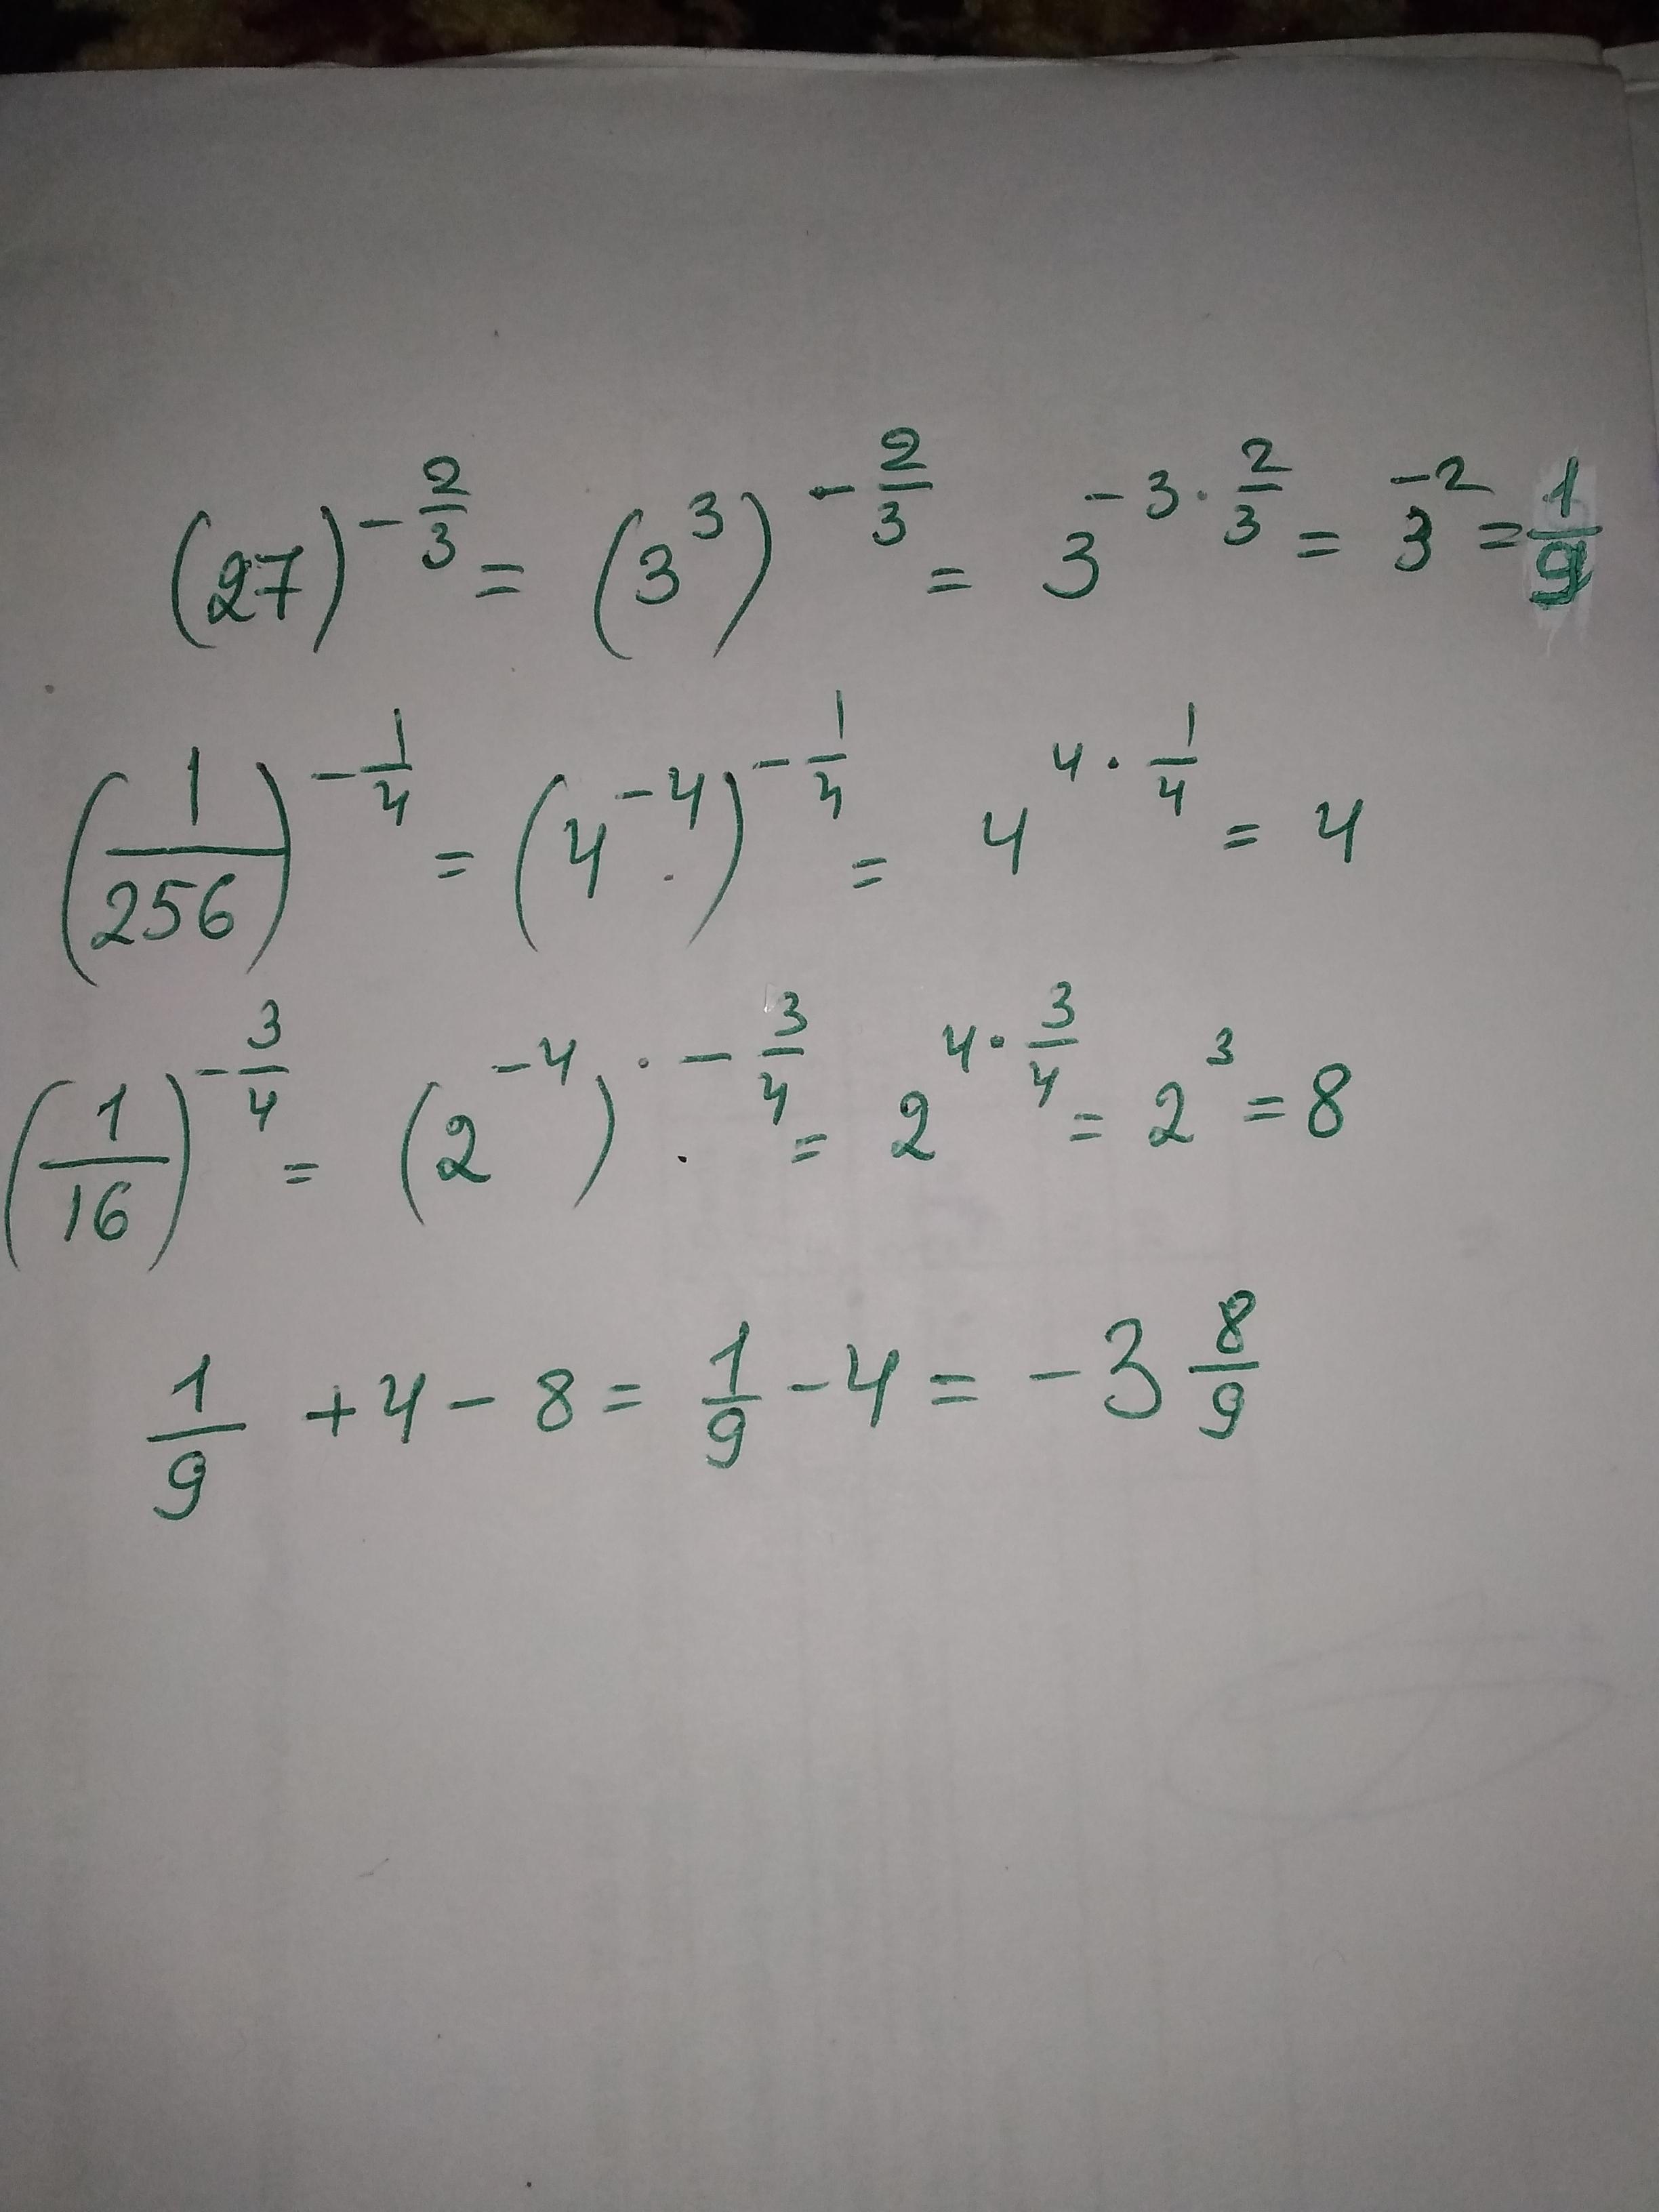 (27)^{-\frac{2}{3}} = (3^3)^{-\frac{2}{3}} = 3^{-3 \cdot \frac{2}{3}} = 3^{-2} = \frac{1}{9}
(\frac{1}{256})^{-\frac{1}{4}} = (4^{-4})^{-\frac{1}{4}} = 4^{4 \cdot \frac{1}{4}} = 4
(\frac{1}{16})^{-\frac{3}{4}} = (2^{-4})^{\cdot -\frac{3}{4}} = 2^{4 \cdot \frac{3}{4}} = 2^3 = 8
\frac{1}{9} + 4 - 8 = \frac{1}{9} - 4 = -3\frac{8}{9}